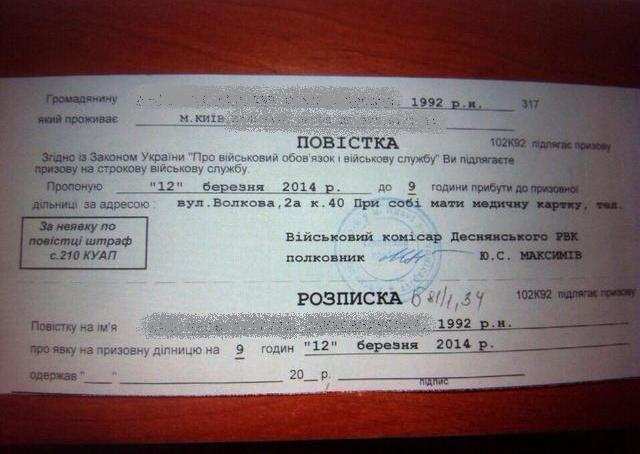 Громадянину 1992 р.н. 317
який проживає м.КИЇВ
ПОВІСТКА 102К92 підлягає призову
Згідно із Законом України "Про військовий обов'язок і військову службу" Ви підлягаєте
призову на строкову військову службу.
Пропоную "12" березня 2014 р. до 9 години прибути до призовної
дільниці за адресою: вул.Волкова,2а к.40 При собі мати медичну картку, тел.
За неявку по
повістці штраф
с.210 КУАП
Військовий комісар Деснянського РВК
полковник Ю.С. МАКСИМІВ
РОЗПИСКА 102К92 підлягає призову
Повістку на ім'я 1992 р.н.
про явку на призовну ділницю на 9 годин "12" березня 2014 р.
одержав "___" ___ 20__ р. ___
підпис